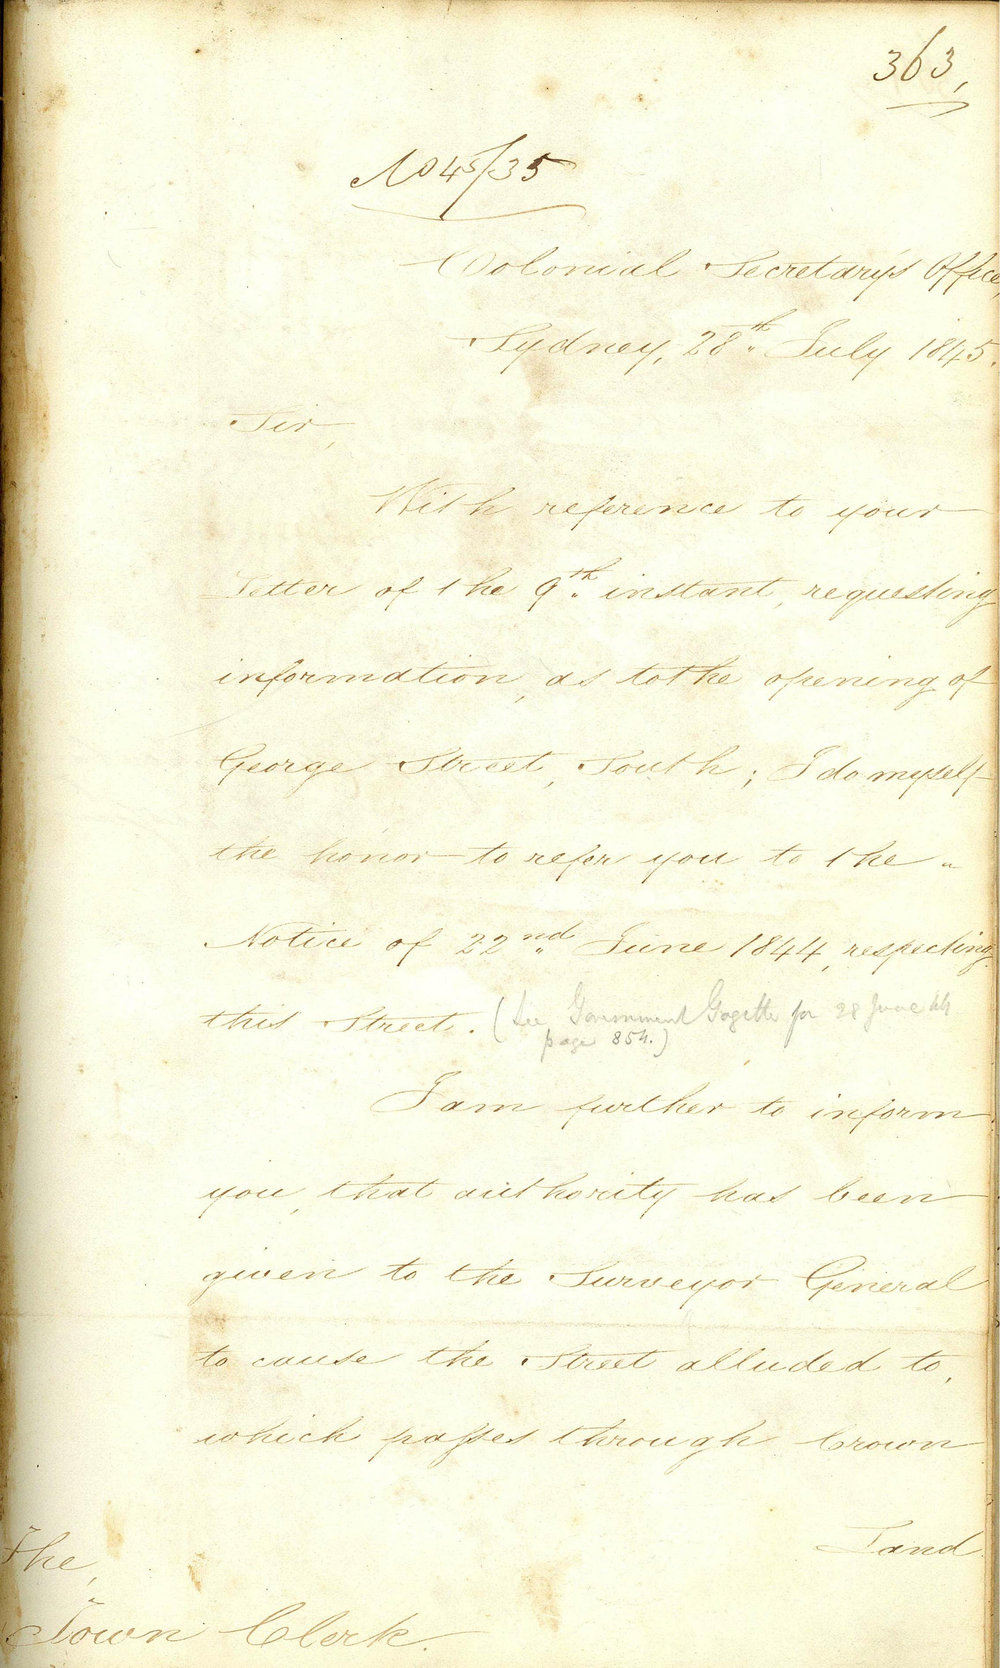 363,
No 45/35
Colonial Secretary's Office,
Sydney, 28th July 1845.
Sir,
With reference to your
Letter of the 9th instant, requesting
information, as to the opening of
George Street, South; I do myself
the honor to refer you to the "
Notice of 22nd June 1844, respecting
this Street. (See Government Gazette for 28 June 44
page 854.)
I am further to inform
you, that authority has been
given to the Surveyor General
to cause the Street alluded to,
which passes through Crown
Land
The,
Town Clerk.